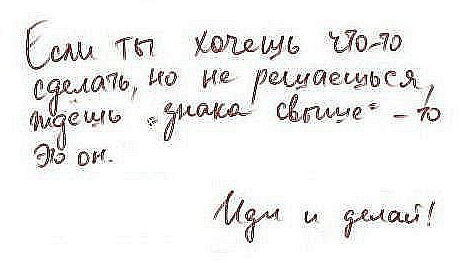 Если ты хочешь что-то
сделать, но не решаешься,
ждёшь „знака свыше“ - то
это он.
Иди и делай!